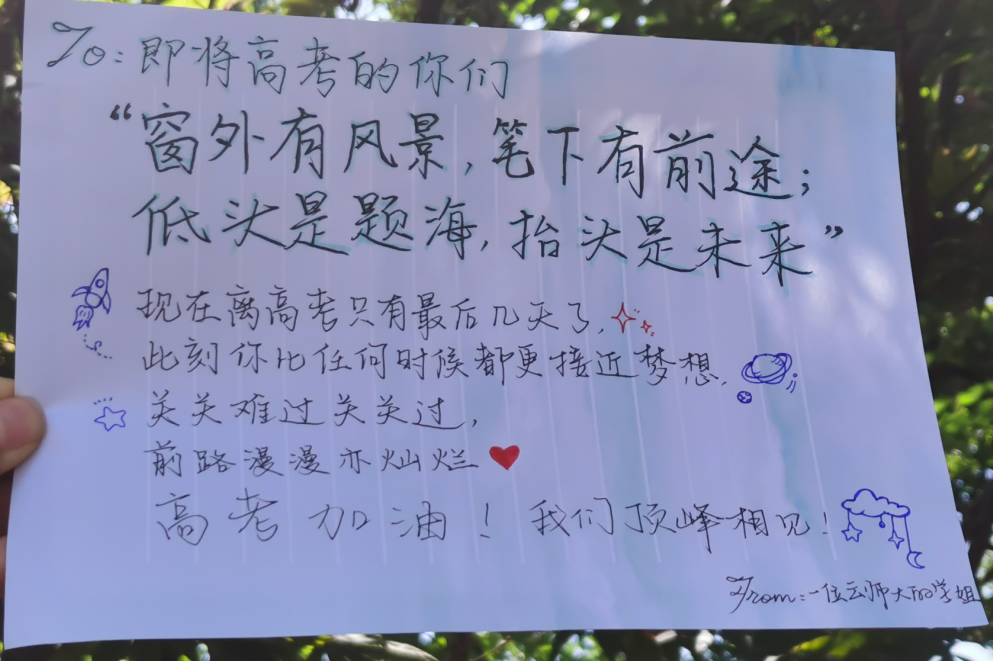 To: 即将高考的你们
“窗外有风景,笔下有前途;
低头是题海,抬头是未来”
现在离高考只有最后几天了,
此刻你比任何时候都更接近梦想,
关关难过关关过,
前路漫漫亦灿烂
高考加油!我们顶峰相见!
From:一位云师大的学姐